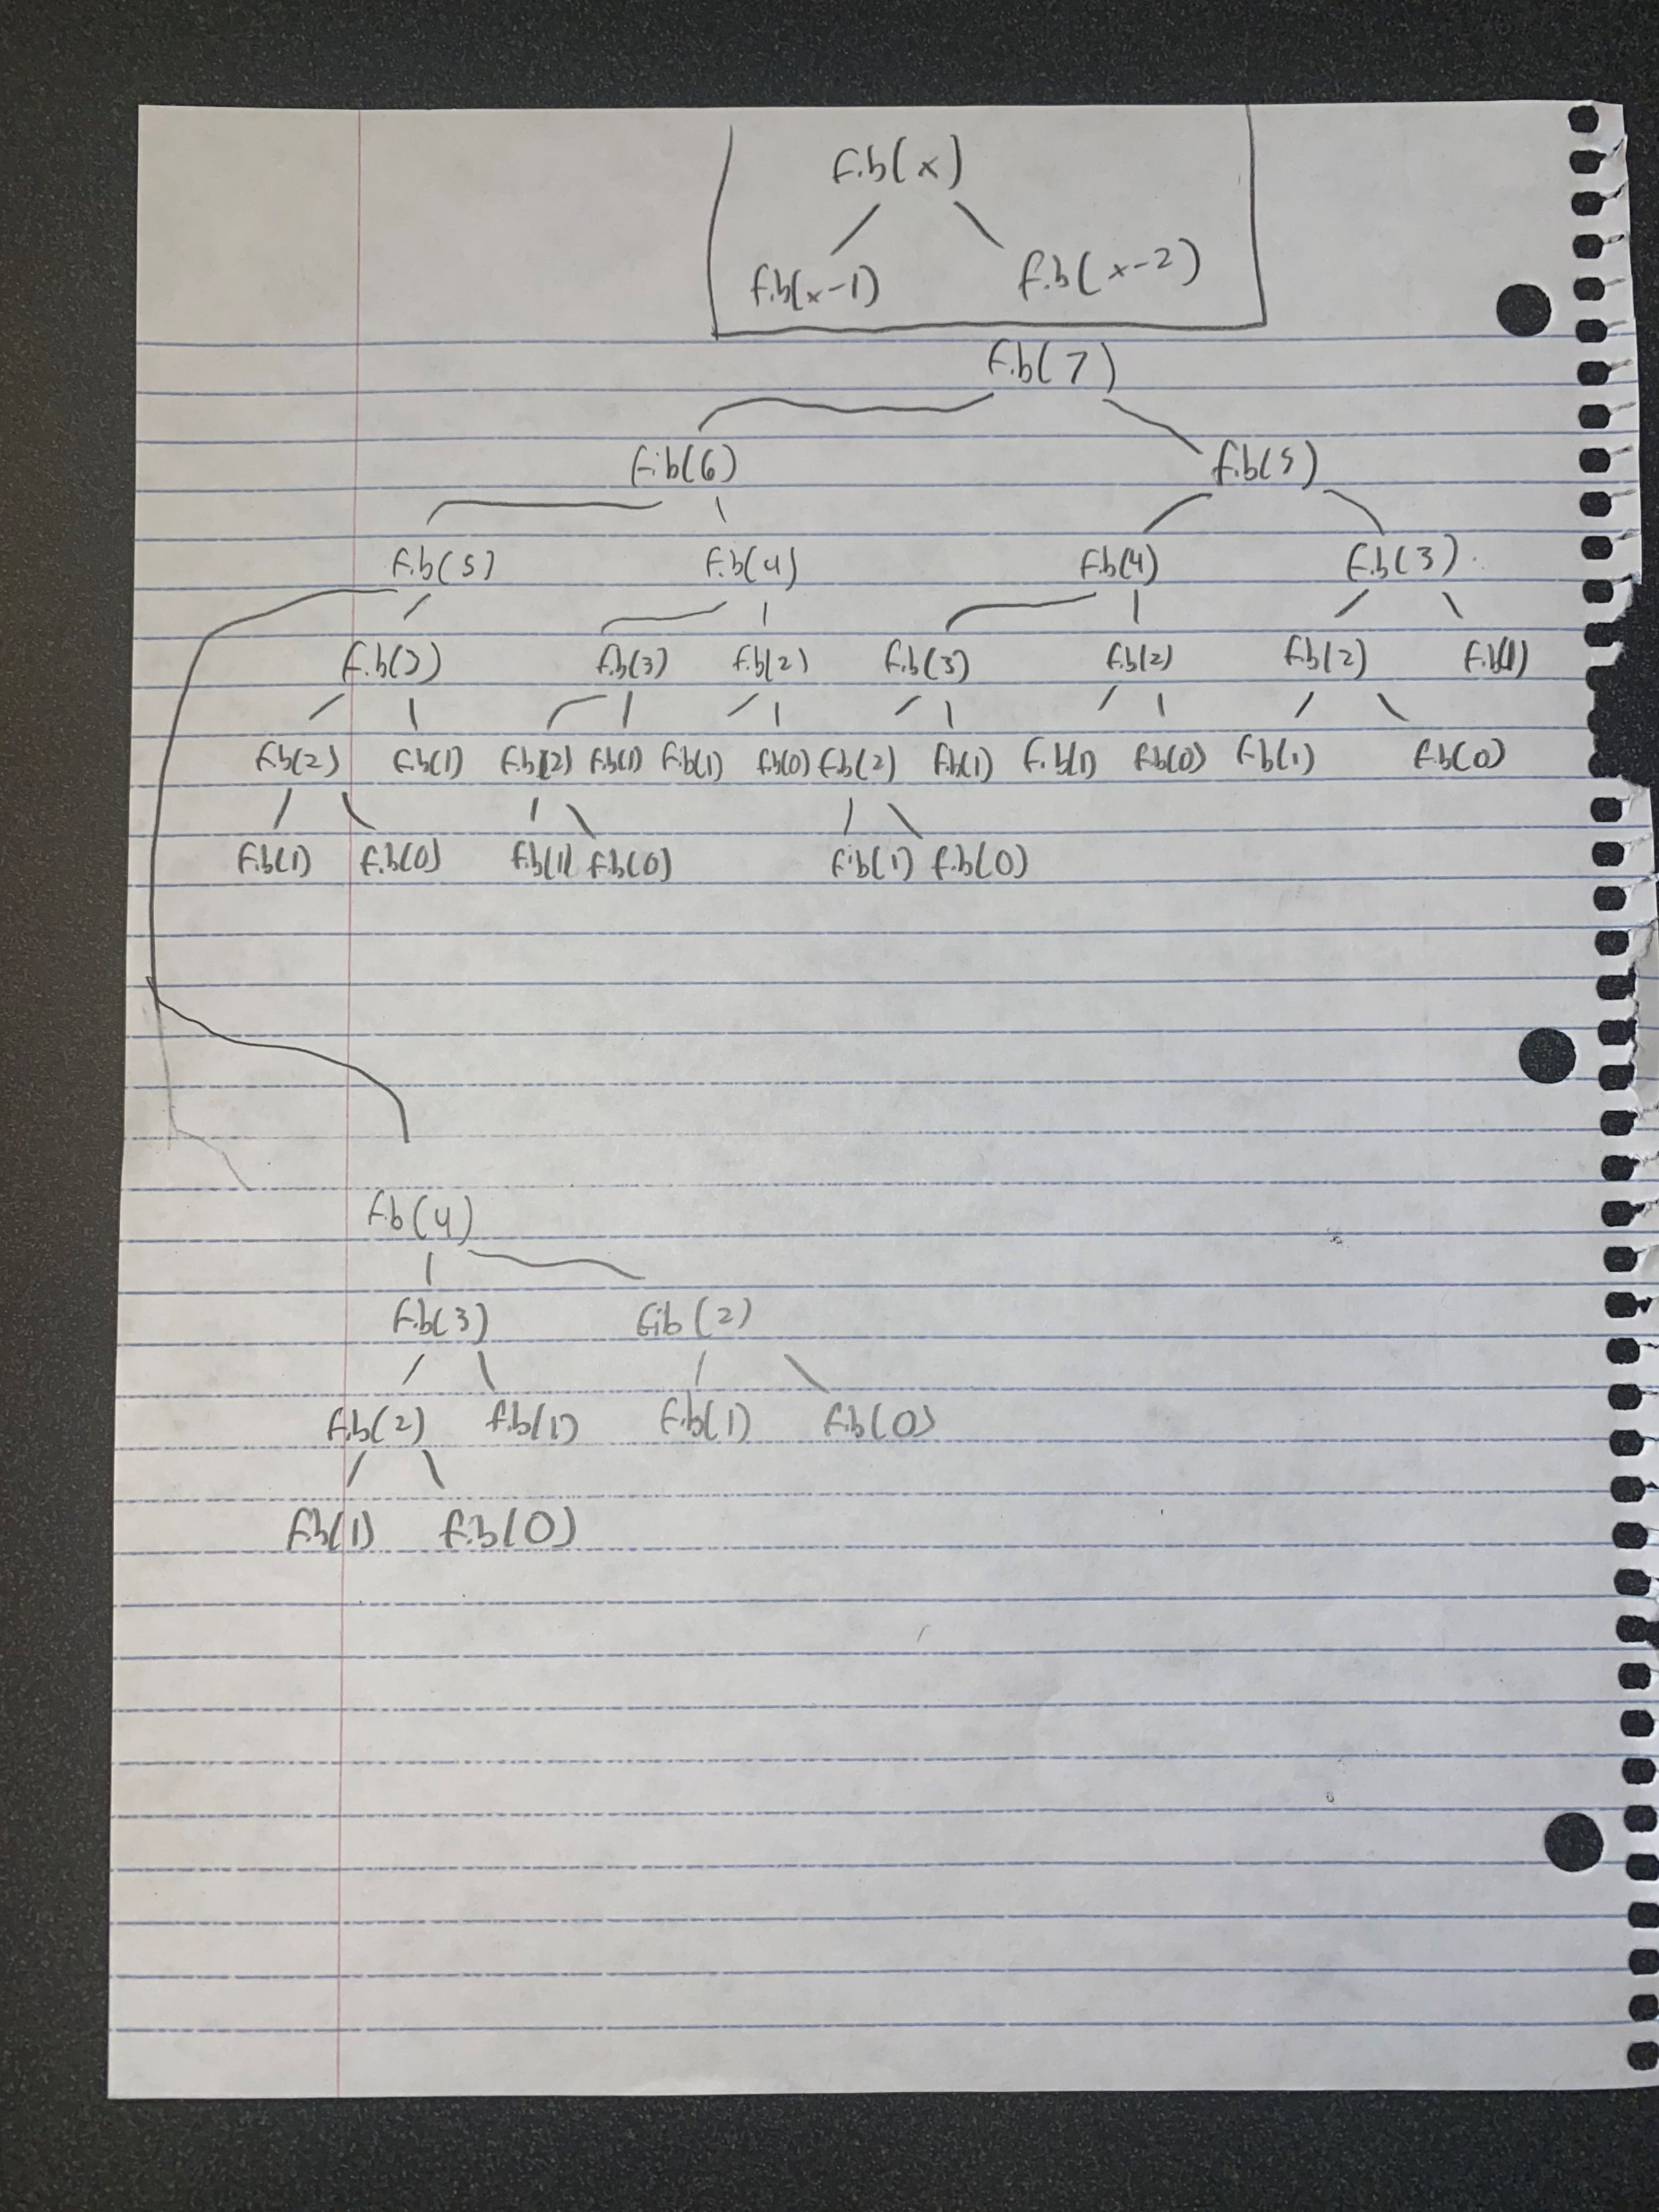 fib(x)
fib(x-1) fib(x-2)
fib(7)
fib(6) fib(5)
fib(5) fib(4) fib(4) fib(3)
fib(3) fib(3) fib(2) fib(3) fib(2) fib(2) fib(1)
fib(2) fib(1) fib(2) fib(1) fib(1) fib(0) fib(2) fib(1) fib(1) fib(0) fib(1) fib(0)
fib(1) fib(0) fib(1) fib(0) fib(1) fib(0)
fib(4)
fib(3) fib(2)
fib(2) fib(1) fib(1) fib(0)
fib(1) fib(0)